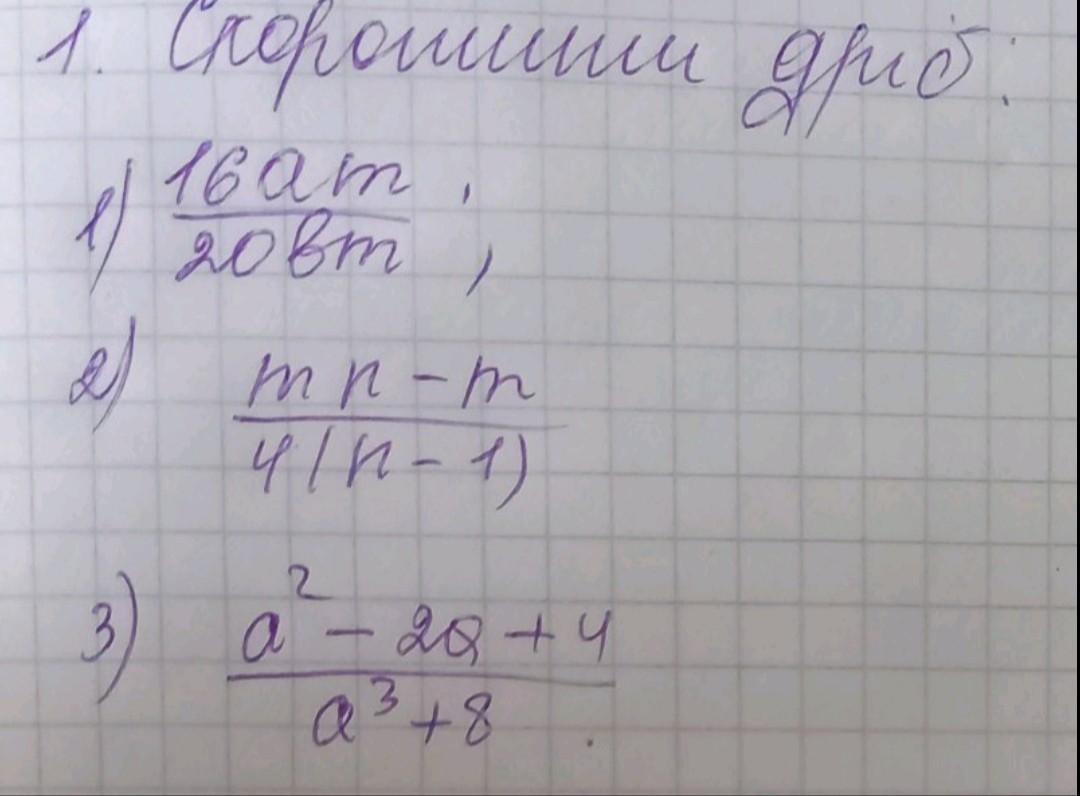 1. Скоротити дріб:
1) 16am ;
20bm
2) mn - m
4(n - 1)
3) a² - 2a + 4
a³ + 8 .